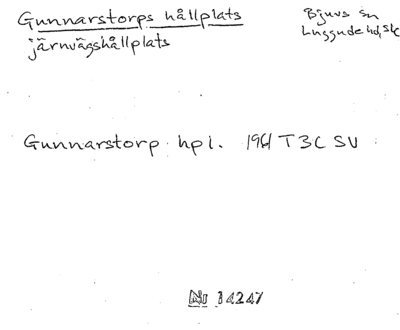 Gunnarstorps hållplats
järnvägshållplats
Bjuvs sn
Luggude hd, Sk
Gunnarstorp hpl. 1961 T3C SV
Nr 14247